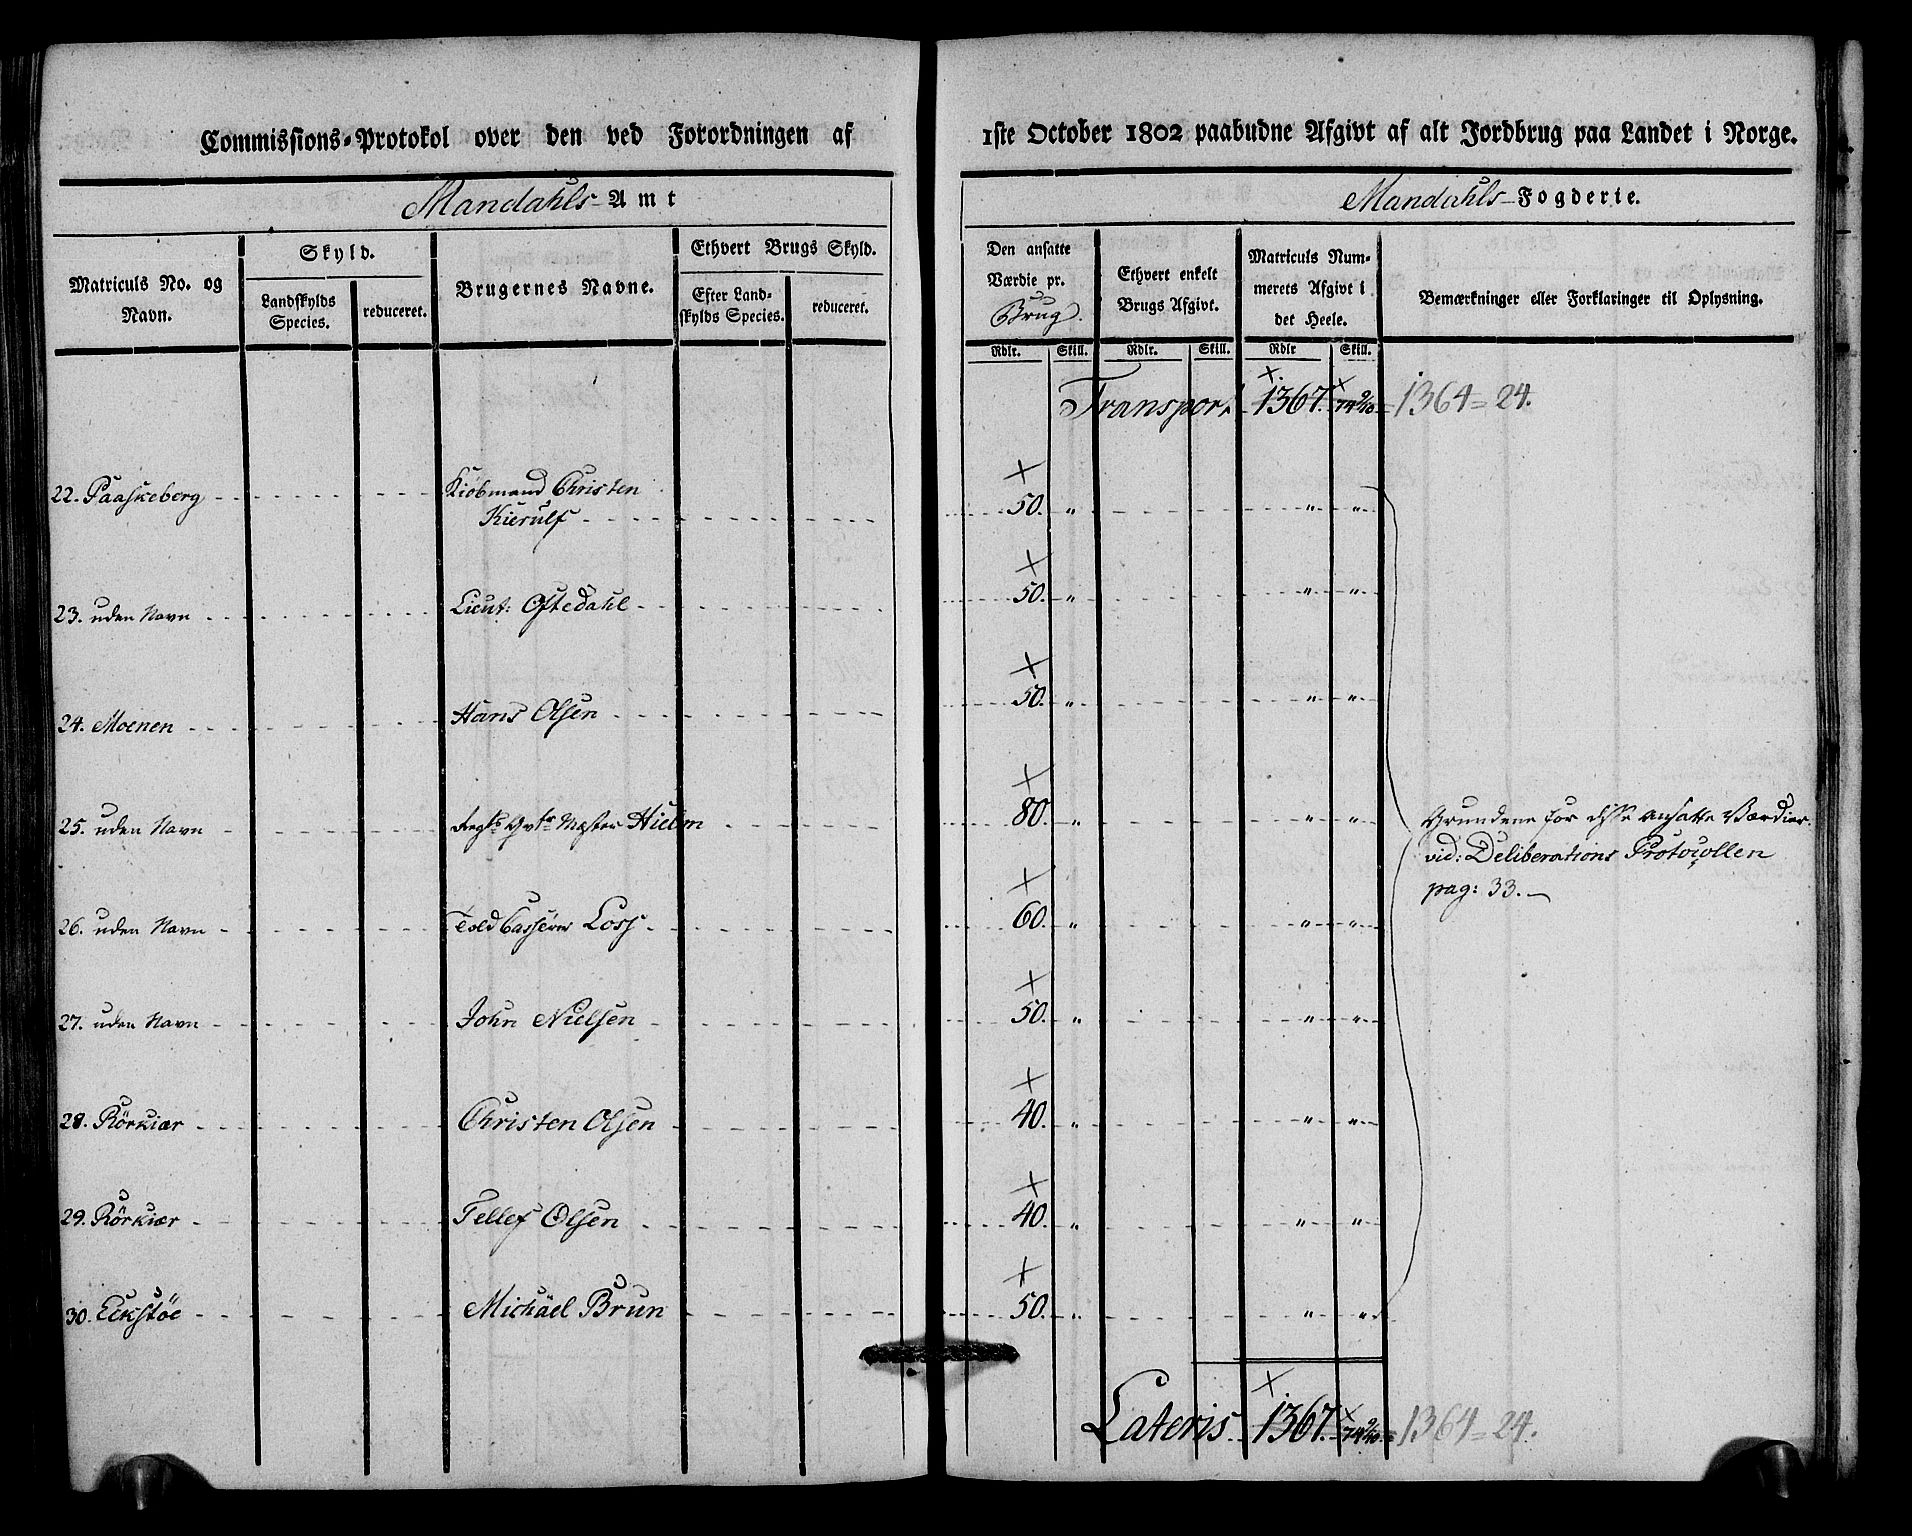 Commissions-Protokol over den ved Forordningen af
1ste October 1802 paabudne Afgivt af alt Jordbrug paa Landet i Norge.
Mandahls Amt
Mandahls Fogderie.
Matriculs No. og Navn.
Skyld.
Landskylds Species.
reduceret.
Brugernes Navne.
Ethvert Brugs Skyld.
Efter Landskylds Species.
reduceret.
Den ansatte Værdie pr. Brug.
Ethvert enkelt Brugs Afgivt.
Matriculs Nummerets Afgivt i det Heele.
Bemærkninger eller Forklaringer til Oplysning.
Rdlr. Skill. Rdlr. Skill. Rdlr Skill.
Transport 1367. 1364 = 24.
22. Paaskeberg Kiöbmand Christen
Kierulf 50. " " "
23. uden Navn Lieut: Oftedahl 50. " " "
24. Moenen Hans Olsen 50. " " "
25. uden Navn Regts Qvtr Mester Hielm 80. " " "
26. uden Navn Told Casserer Loss 60. " " "
27. uden Navn John Nielsen 50. " " "
28. Rörkiær Christen Olsen 40. " " "
29. Rörkiær Tellef Olsen 40. " " "
30. Eckstöe Michäel Brun 50. " " "
Grundene for disse ansatte Værdier
vid: Deliberations Protocollen
pag: 33.
Lateris 1367. 1364 = 24.